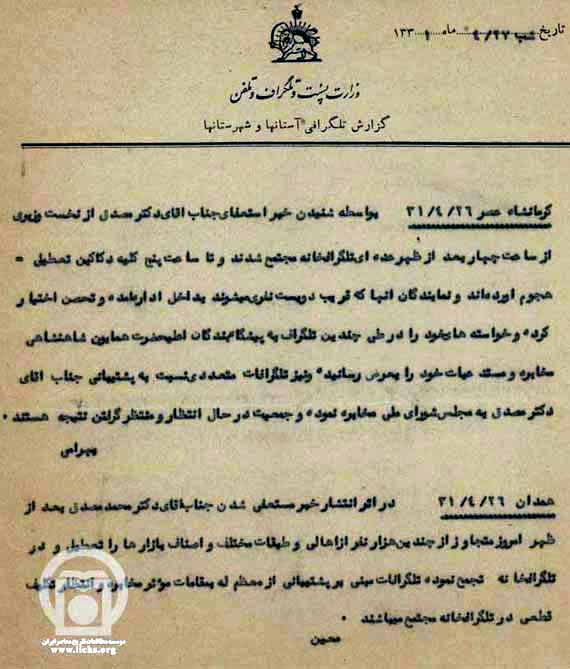 تاریخ شب ۴/۲۷ ماه ۱۳۳۱
وزارت پست و تلگراف و تلفن
گزارش تلگرافی آستانها و شهرستانها
کرمانشاه عصر ۳۱/۴/۲۶ بواسطه شنیدن خبر استعفای جناب اقای دکتر مصدق از نخست وزیری
از ساعت چهار بعد از ظهر عده ای تلگرافخانه مجتمع شدند و تا ساعت پنج کلیه دکاکین تعطیل =
هجوم اورده‌اند و نمایندگان انها که قریب دویست نفری میشوند بداخل اداره امده و تحصن اختیار
کرده و خواسته های خود را در طی چندین تلگراف به پیشگاه بندگان اعلیحضرت همایون شاهنشاهی
مخابره و مستدعیات خود را بعرض رسانیده و نیز تلگرافات متعددی نسبت به پشتیبانی جناب اقای
دکتر مصدق به مجلس شورای ملی مخابره نموده و جمعیت در حال انتظار و منتظر گرفتن نتیجه هستند ۰
بهرامی
همدان ۳۱/۴/۲۶ در اثر انتشار خبر مستعفی شدن جناب اقای دکتر محمد مصدق بعد از
ظهر امروز متجاوز از چندین هزار نفر از اهالی و طبقات مختلف و اصناف بازار ها را تعطیل و در
تلگرافخانه تجمع نموده تلگرافات مبنی بر پشتیبانی از معظم له بمقامات مؤثر مخابره و انتظار تکلیف
قطعی در تلگرافخانه مجتمع میباشند ۰
معین
موسسه مطالعات تاریخ معاصر ایران
www.iichs.org